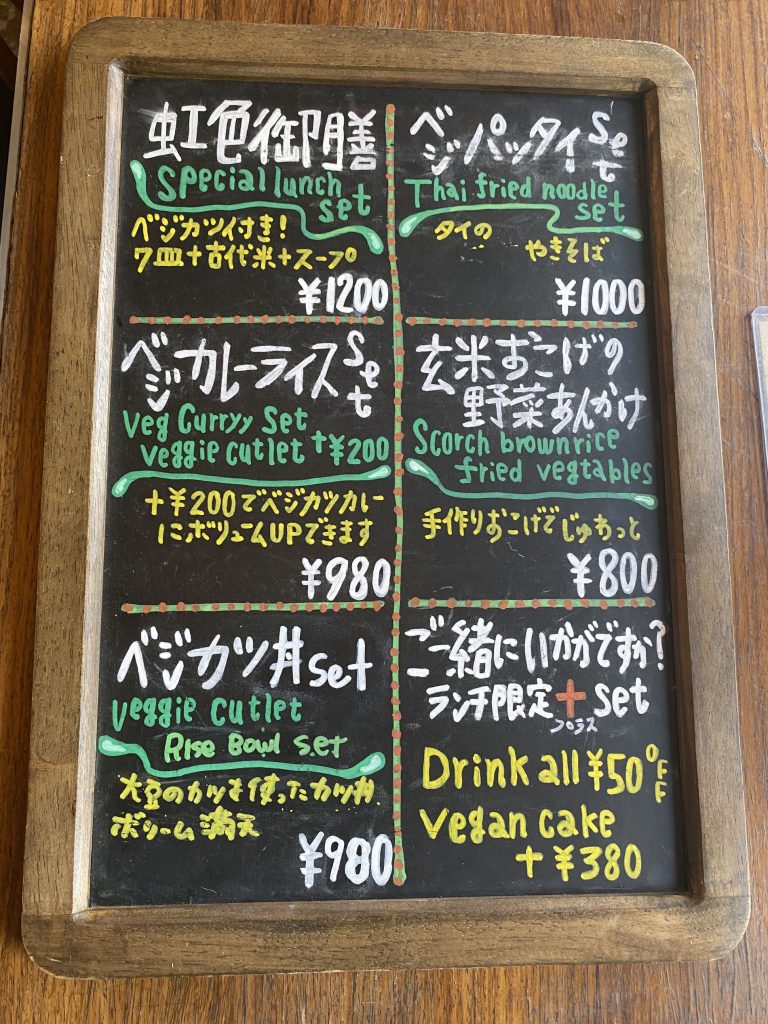 虹色御膳
special lunch
set
ベジカツ付き!
7皿+古代米+スープ
¥1200
ベジパッタイset
Thai fried noodle
set
タイの やきそば
¥1000
ベジカレーライスset
veg Curryy Set
veggie cutlet +¥200
+¥200でベジカツカレー
にボリュームUPできます
¥980
玄米おこげの
野菜あんかけ
Scorch brown rice
fried vegtables
手作りおこげでじゅわっと
¥800
ベジカツ丼set
veggie cutlet
Rise Bowl set
大豆のカツを使ったカツ丼、
ボリーム満天
¥980
ご一緒にいかがですか?
ランチ限定+set
プラス
Drink all ¥50OFF
vegan cake
+¥380